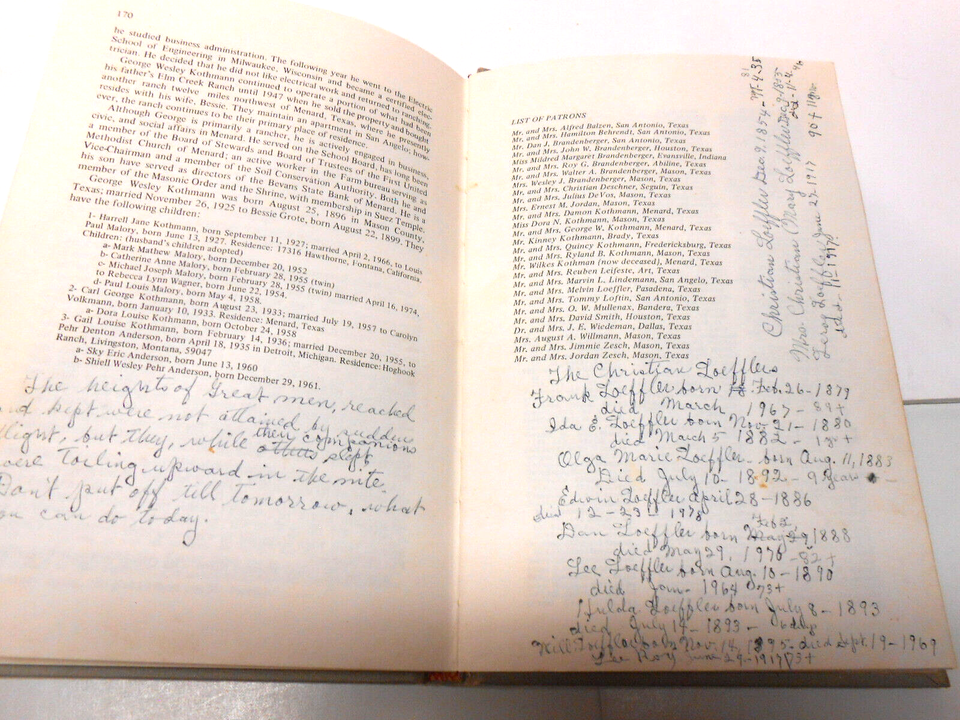 170
he studied business administration. The following year he went to the Electric
School of Engineering in Milwaukee, Wisconsin and became a certified elec-
trician. He decided that he did not like electrical work and returned to ranching.
George Wesley Kothmann continued to operate a portion of what had been
his father's Elm Creek Ranch until 1947 when he sold the property and bought
another ranch twelve miles northwest of Menard, Texas, where he presently
resides with his wife, Bessie. They maintain an apartment in San Angelo; how-
ever, the ranch continues to be their primary place of residence.
Although George is primarily a rancher, he is actively engaged in business,
civic, and social affairs in Menard. He served on the School Board; has long been
a member of the Board of Stewards and Board of Trustees of the First United
Methodist Church of Menard; an active worker in the Farm bureau serving as
Vice-Chairman and a member of the Soil Conservation Authority. Both he and
his son have served as directors of the Bevans State Bank of Menard. He is a
member of the Masonic Order and the Shrine, with membership in Suez Temple.
George Wesley Kothmann was born August 25, 1896 in Mason County,
Texas; married November 26, 1925 to Bessie Grote, born August 22, 1899. They
have the following children:
1- Harrell Jane Kothmann, born September 11, 1927; married April 2, 1966, to Louis
Paul Malory, born June 13, 1927. Residence: 17316 Hawthorne, Fontana, California.
Children: (husband's children adopted)
a- Mark Mathew Malory, born December 20, 1952
b- Catherine Anne Malory, born February 28, 1955 (twin)
c- Michael Joseph Malory, born February 28, 1955 (twin) married April 16, 1974,
to Rebecca Lynn Wagner, born June 22, 1954.
d- Paul Louis Malory, born May 4, 1958.
2- Carl George Kothmann, born August 23, 1933; married July 19, 1957 to Carolyn
Volkmann, born January 10, 1933. Residence: Menard, Texas
a- Dora Louise Kothmann, born October 24, 1958
3- Gail Louise Kothmann, born February 14, 1936; married December 20, 1955, to
Pehr Denton Anderson, born April 18, 1935 in Detroit, Michigan. Residence: Hoghook
Ranch, Livingston, Montana, 59047
a- Sky Eric Anderson, born June 13, 1960
b- Shiell Wesley Pehr Anderson, born December 29, 1961.
The heights of Great men, reached
nd kept were not attained by sudden
flight, but they, while their companions
slept,
were toiling upward in the nite.
Don't put off till tomorrow, what
you can do today.
LIST OF PATRONS
Mr. and Mrs. Alfred Balzen, San Antonio, Texas
Mr. and Mrs. Hamilton Behrendt, San Antonio, Texas
Mr. Dan J. Brandenberger, San Antonio, Texas
Mr. and Mrs. John W. Brandenberger, Houston, Texas
Miss Mildred Margaret Brandenberger, Evansville, Indiana
Mr. and Mrs. Roy G. Brandenberger, Abiline, Texas
Mr. and Mrs. Walter A. Brandenberger, Mason, Texas
Mrs. Wesley J. Brandenberger, Menard, Texas
Mr. and Mrs. Christian Deschner, Seguin, Texas
Mr. and Mrs. Julius DeVos, Mason, Texas
Mrs. Ernest M. Jordan, Mason, Texas
Mr. and Mrs. Damon Kothmann, Menard, Texas
Miss Dora N. Kothmann, Mason, Texas
Mr. and Mrs. George W. Kothmann, Menard, Texas
Mr. Kinney Kothmann, Brady, Texas
Mr. and Mrs. Quincy Kothmann, Fredericksburg, Texas
Mr. and Mrs. Ryland B. Kothmann, Mason, Texas
Mr. Wilkes Kothman (now deceased), Menard, Texas
Mr. and Mrs. Reuben Leifeste, Art, Texas
Mr. and Mrs. Marvin L. Lindemann, San Angelo, Texas
Mr. and Mrs. Melvin Loeffler, Pasadena, Texas
Mr. and Mrs. Tommy Loftin, San Antonio, Texas
Mr. and Mrs. O. W. Mullenax, Bandera, Texas
Mr. and Mrs. David Smith, Houston, Texas
Dr. and Mrs. J. E. Wiedeman, Dallas, Texas
Mrs. August A. Willmann, Mason, Texas
Mr. and Mrs. Jimmie Zesch, Mason, Texas
Mr. and Mrs. Jordan Zesch, Mason, Texas
Christian Loeffler Dec. 9, 1854 - 4-35
Mrs. Christian (Mary Loeffler)
Leroy Loeffler June 29, 1917
The Christian Loefflers
Frank Loeffler born Feb. 26 - 1879
died March 1967 -
Ida E. Loeffler born Nov. 21 - 1880
died March 5 1882 -
Olga Marie Loeffler - born Aug. 11, 1883
Died July 10 - 1892 - 9 years
Edwin Loeffler April 28 - 1886
died 12 - 23 - 1978
Dan Loeffler born 1888
died May 29, 1970 - 82+
Lee Loeffler born Aug. 10 - 1890
died Jan - 1964 73+
Hulda Loeffler born July 8 - 1893
died July 14 - 1893 -
Will Loeffler born Nov. 14, 1895 - died Sept. 19 - 1969
Lee Roy June 29 - 1917 73+